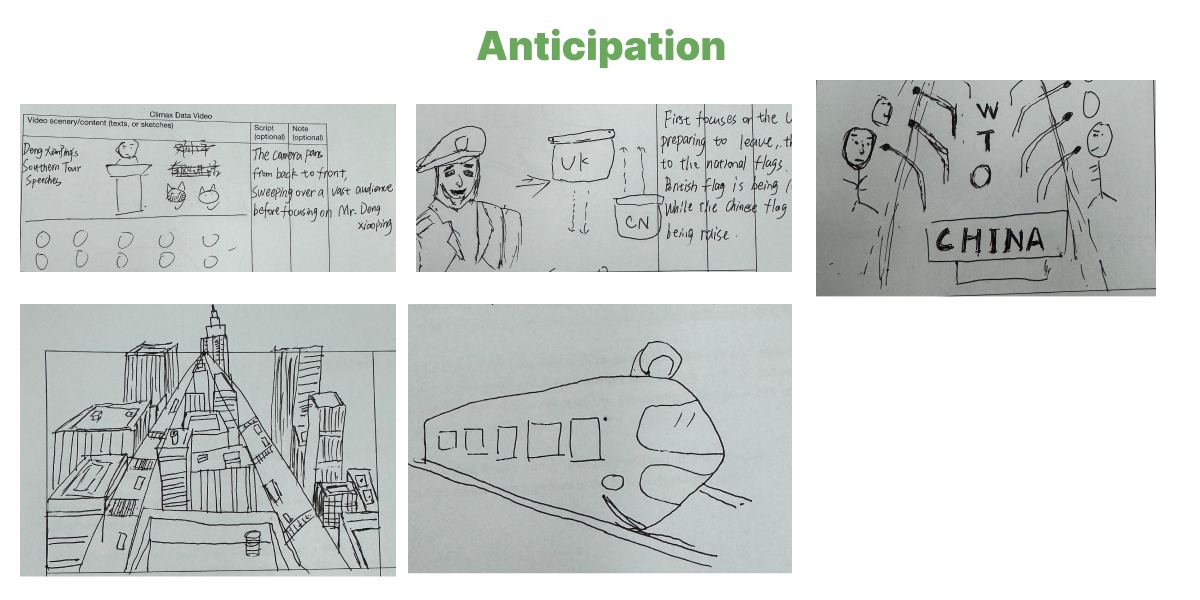 Anticipation
Climax Data Video
Video scenery/content (texts, or sketches)
Script (optional)
Note (optional)
Deng Xiaoping's
Southern Tour
Speeches
The camera pans
from back to front,
sweeping over a vast audience
before focusing on Mr. Deng
xiaoping
UK
CN
First focuses on the U
preparing to leave, th
to the national flags.
British flag is being
while the Chinese flag
being raise.
W
T
O
CHINA